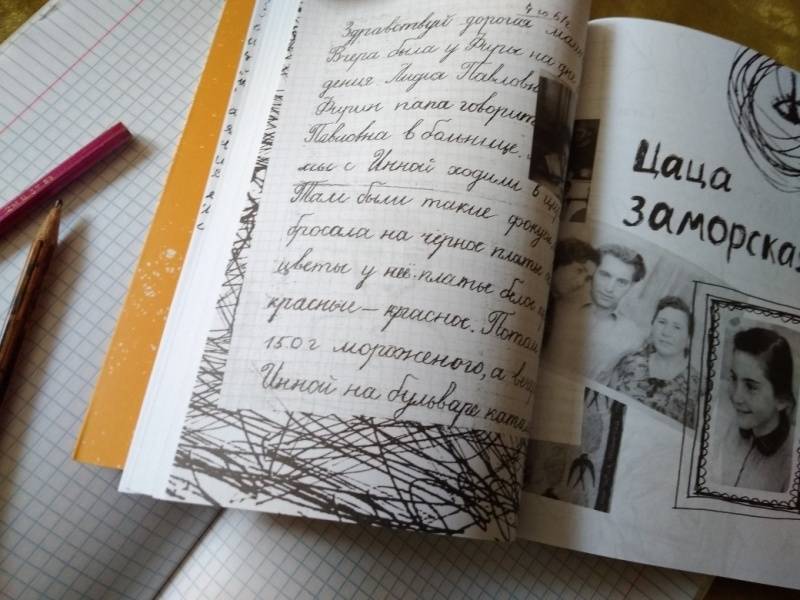 Здравствуй дорогая мам
Вчера была у Фиры на дне
дения Лидия Павловн
Фирин папа говорит
Павловна в больнице.
мы с Инной ходили в цир
Там были такие фокусы
бросала на чёрное платье
цветы у неё платье белое
красные – красное. Потом
150 г мороженого, а вече
Инной на бульваре ката
Цаца
заморская